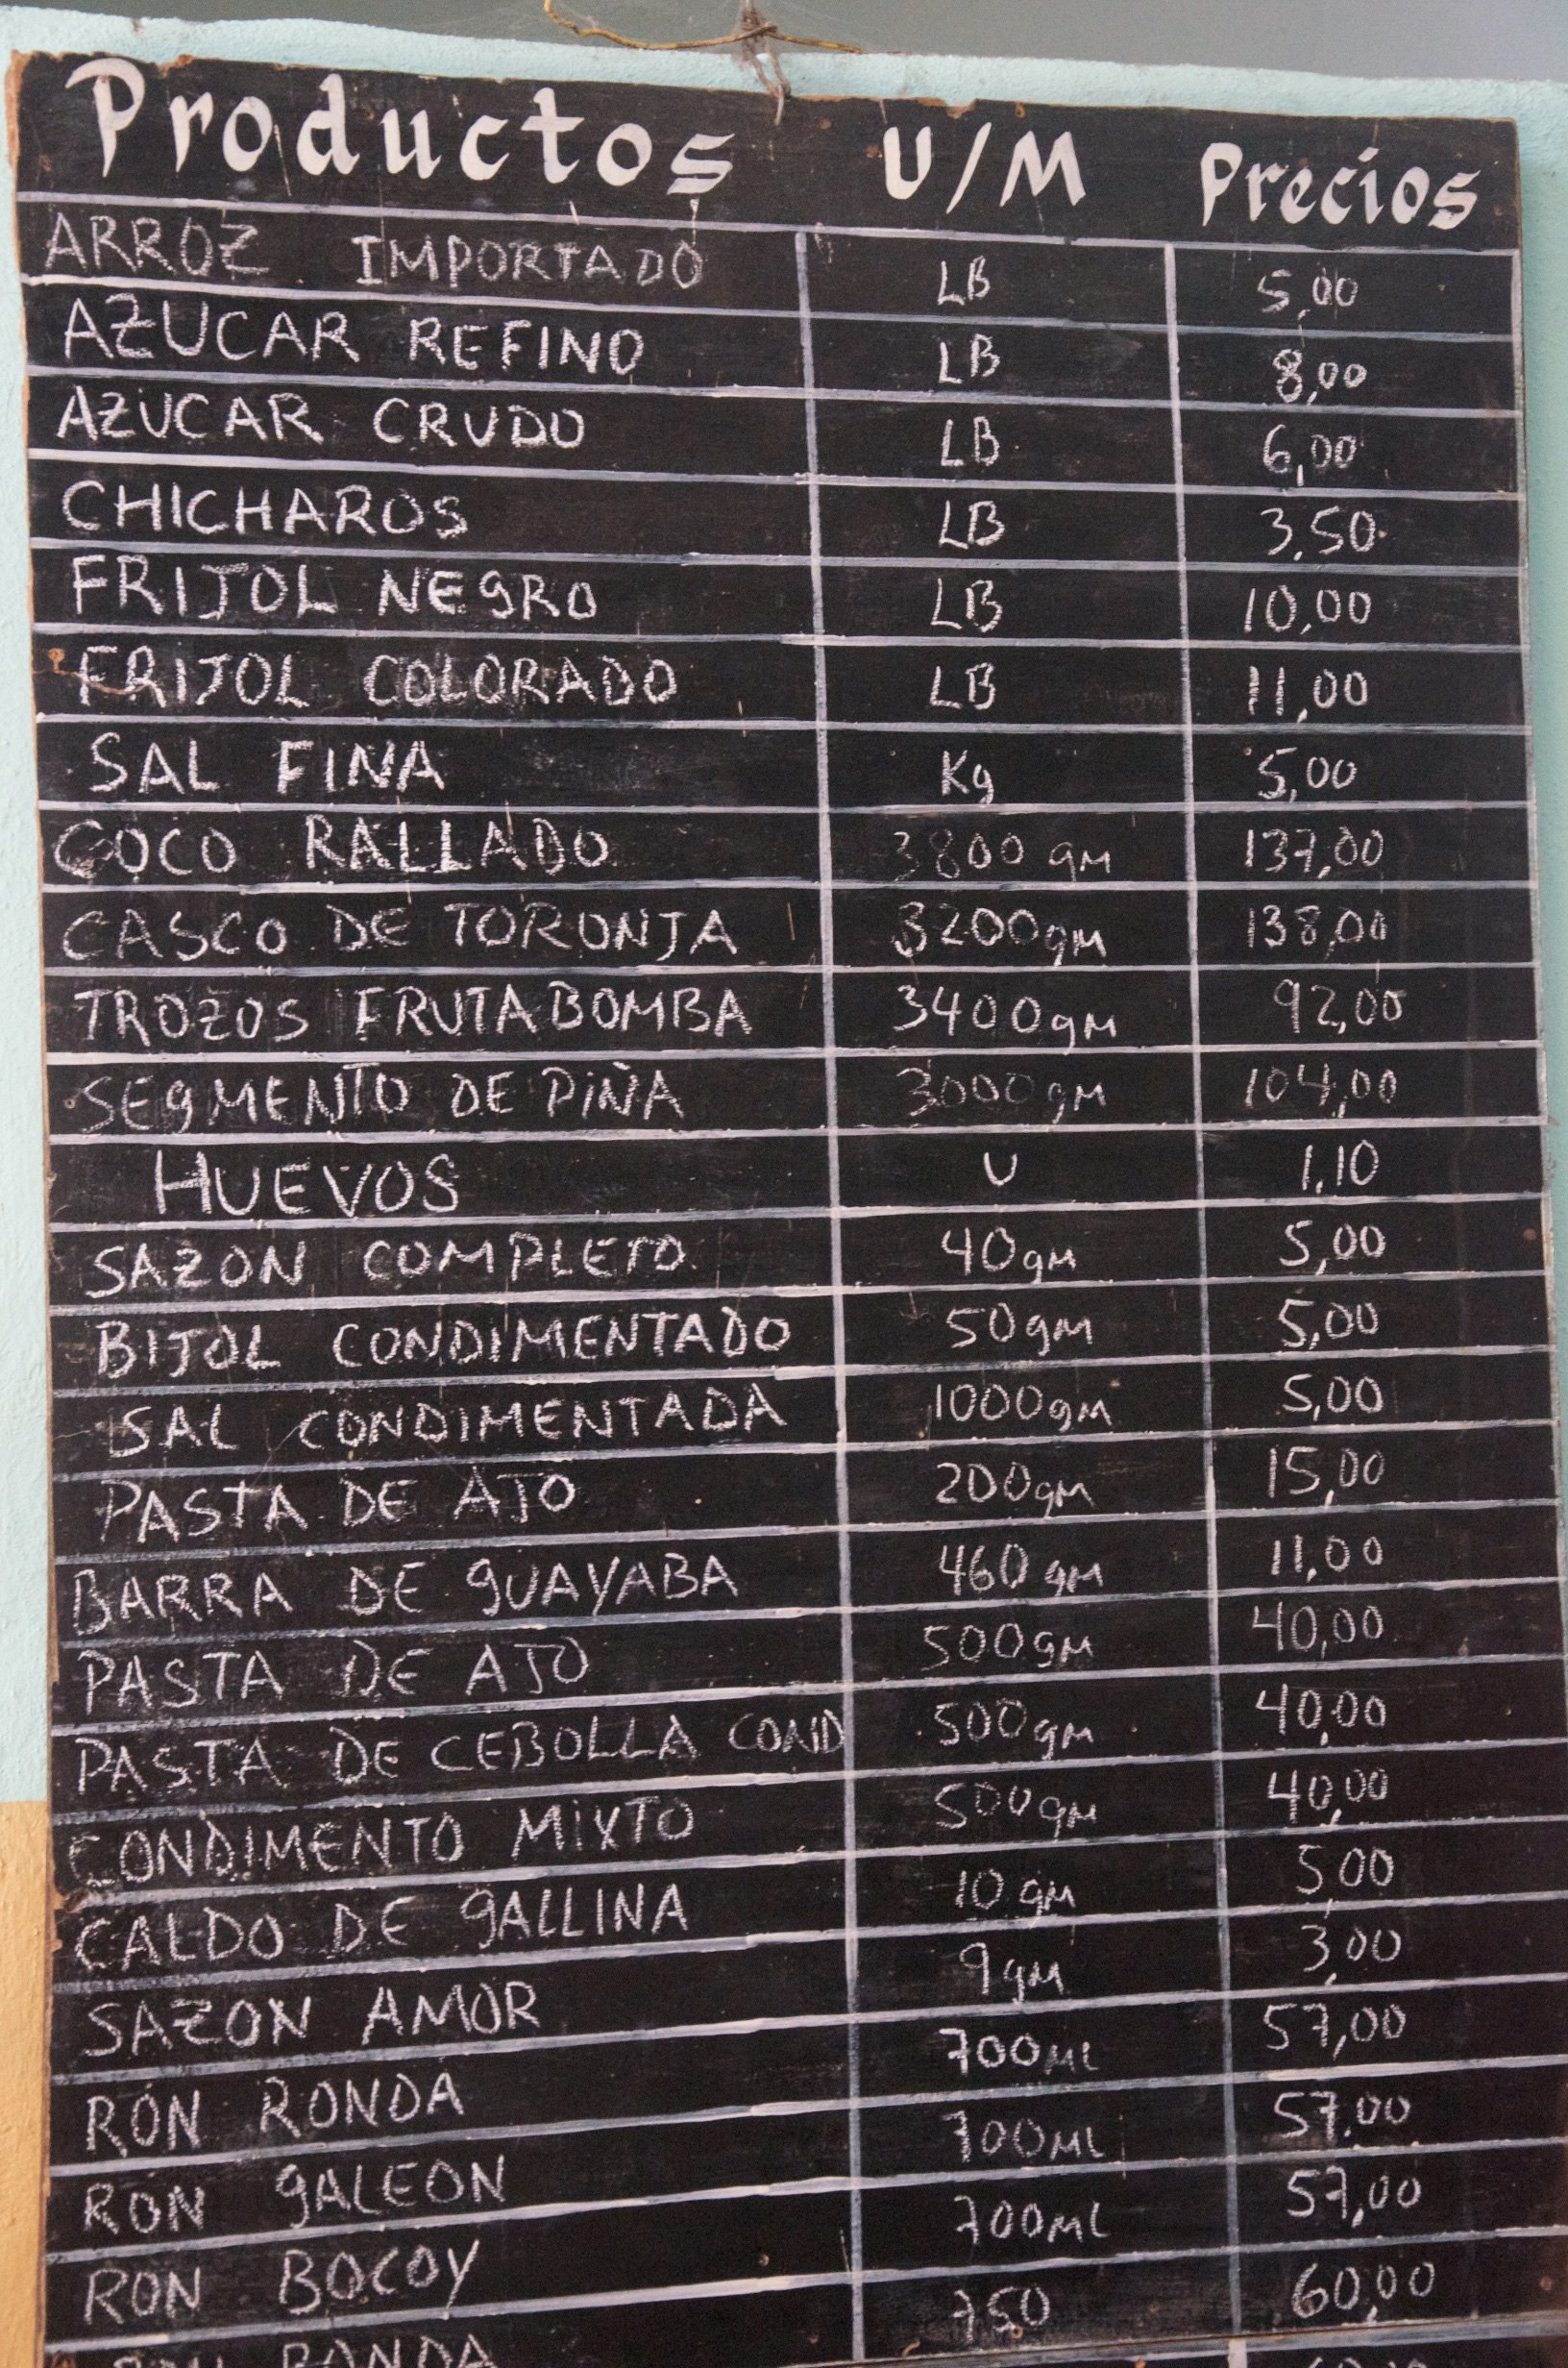 Productos U/M Precios
ARROZ IMPORTADO LB 5,00
AZUCAR REFINO LB 8,00
AZUCAR CRUDO LB 6,00
CHICHAROS LB 3.50
FRIJOL NEGRO LB 10,00
FRIJOL COLORADO LB 11,00
SAL FINA Kg 5,00
COCO RALLADO 3800 gM 137,00
CASCO DE TORONJA 3200gM 138,00
TROZOS FRUTABOMBA 3400gM 92,00
SEgMENTO DE PIÑA 3000gM 104,00
HUEVOS U 1,10
SAZON COMPLETO 40gM 5,00
BIJOL CONDIMENTADO 50gM 5,00
SAL CONDIMENTADA 1000gM 5,00
PASTA DE AJO 200gM 15,00
BARRA DE gUAYABA 460 gM 11,00
PASTA DE AJO 500gM 40,00
PASTA DE CEBOLLA COND 500gM 40,00
CONDIMENTO MIXTO 500gM 40,00
CALDO DE gALLINA 10 gM 5,00
SAZON AMOR 9gM 3,00
RON RONDA 700ML 57,00
RON gALEON 700ML 57.00
RON BOCOY 700ML 57,00
RON RONDA 750 60,00